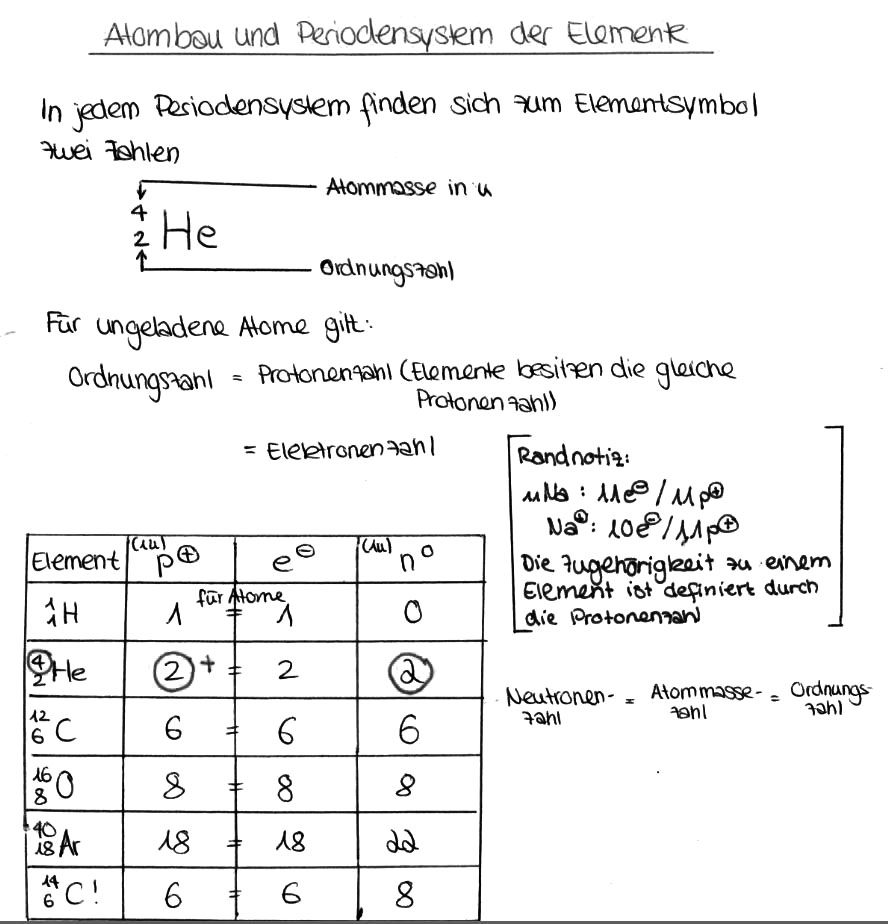 Atombau und Periodensystem der Elemente
In jedem Periodensystem finden sich zum Elementsymbol
zwei Zahlen
Atommasse in u
4
2 He
Ordnungszahl
Für ungeladene Atome gilt:
Ordnungszahl = Protonenzahl (Elemente besitzen die gleiche
Protonenzahl)
= Elektronenzahl
Randnotiz:
₁₁Na : 11e⊖ / 11p⊕
Na⊕ : 10e⊖ / 11p⊕
Die Zugehörigkeit zu einem
Element ist definiert durch
die Protonenzahl
Element (1u) p⊕ e⊖ (1u) n⁰
für Atome
¹₁H 1 = 1 0
⁴₂He 2 + = 2 2
¹²₆C 6 = 6 6
¹⁶₈O 8 = 8 8
⁴⁰₁₈Ar 18 = 18 22
¹⁴₆C! 6 = 6 8
Neutronen- = Atommasse- = Ordnungs-
zahl zahl zahl